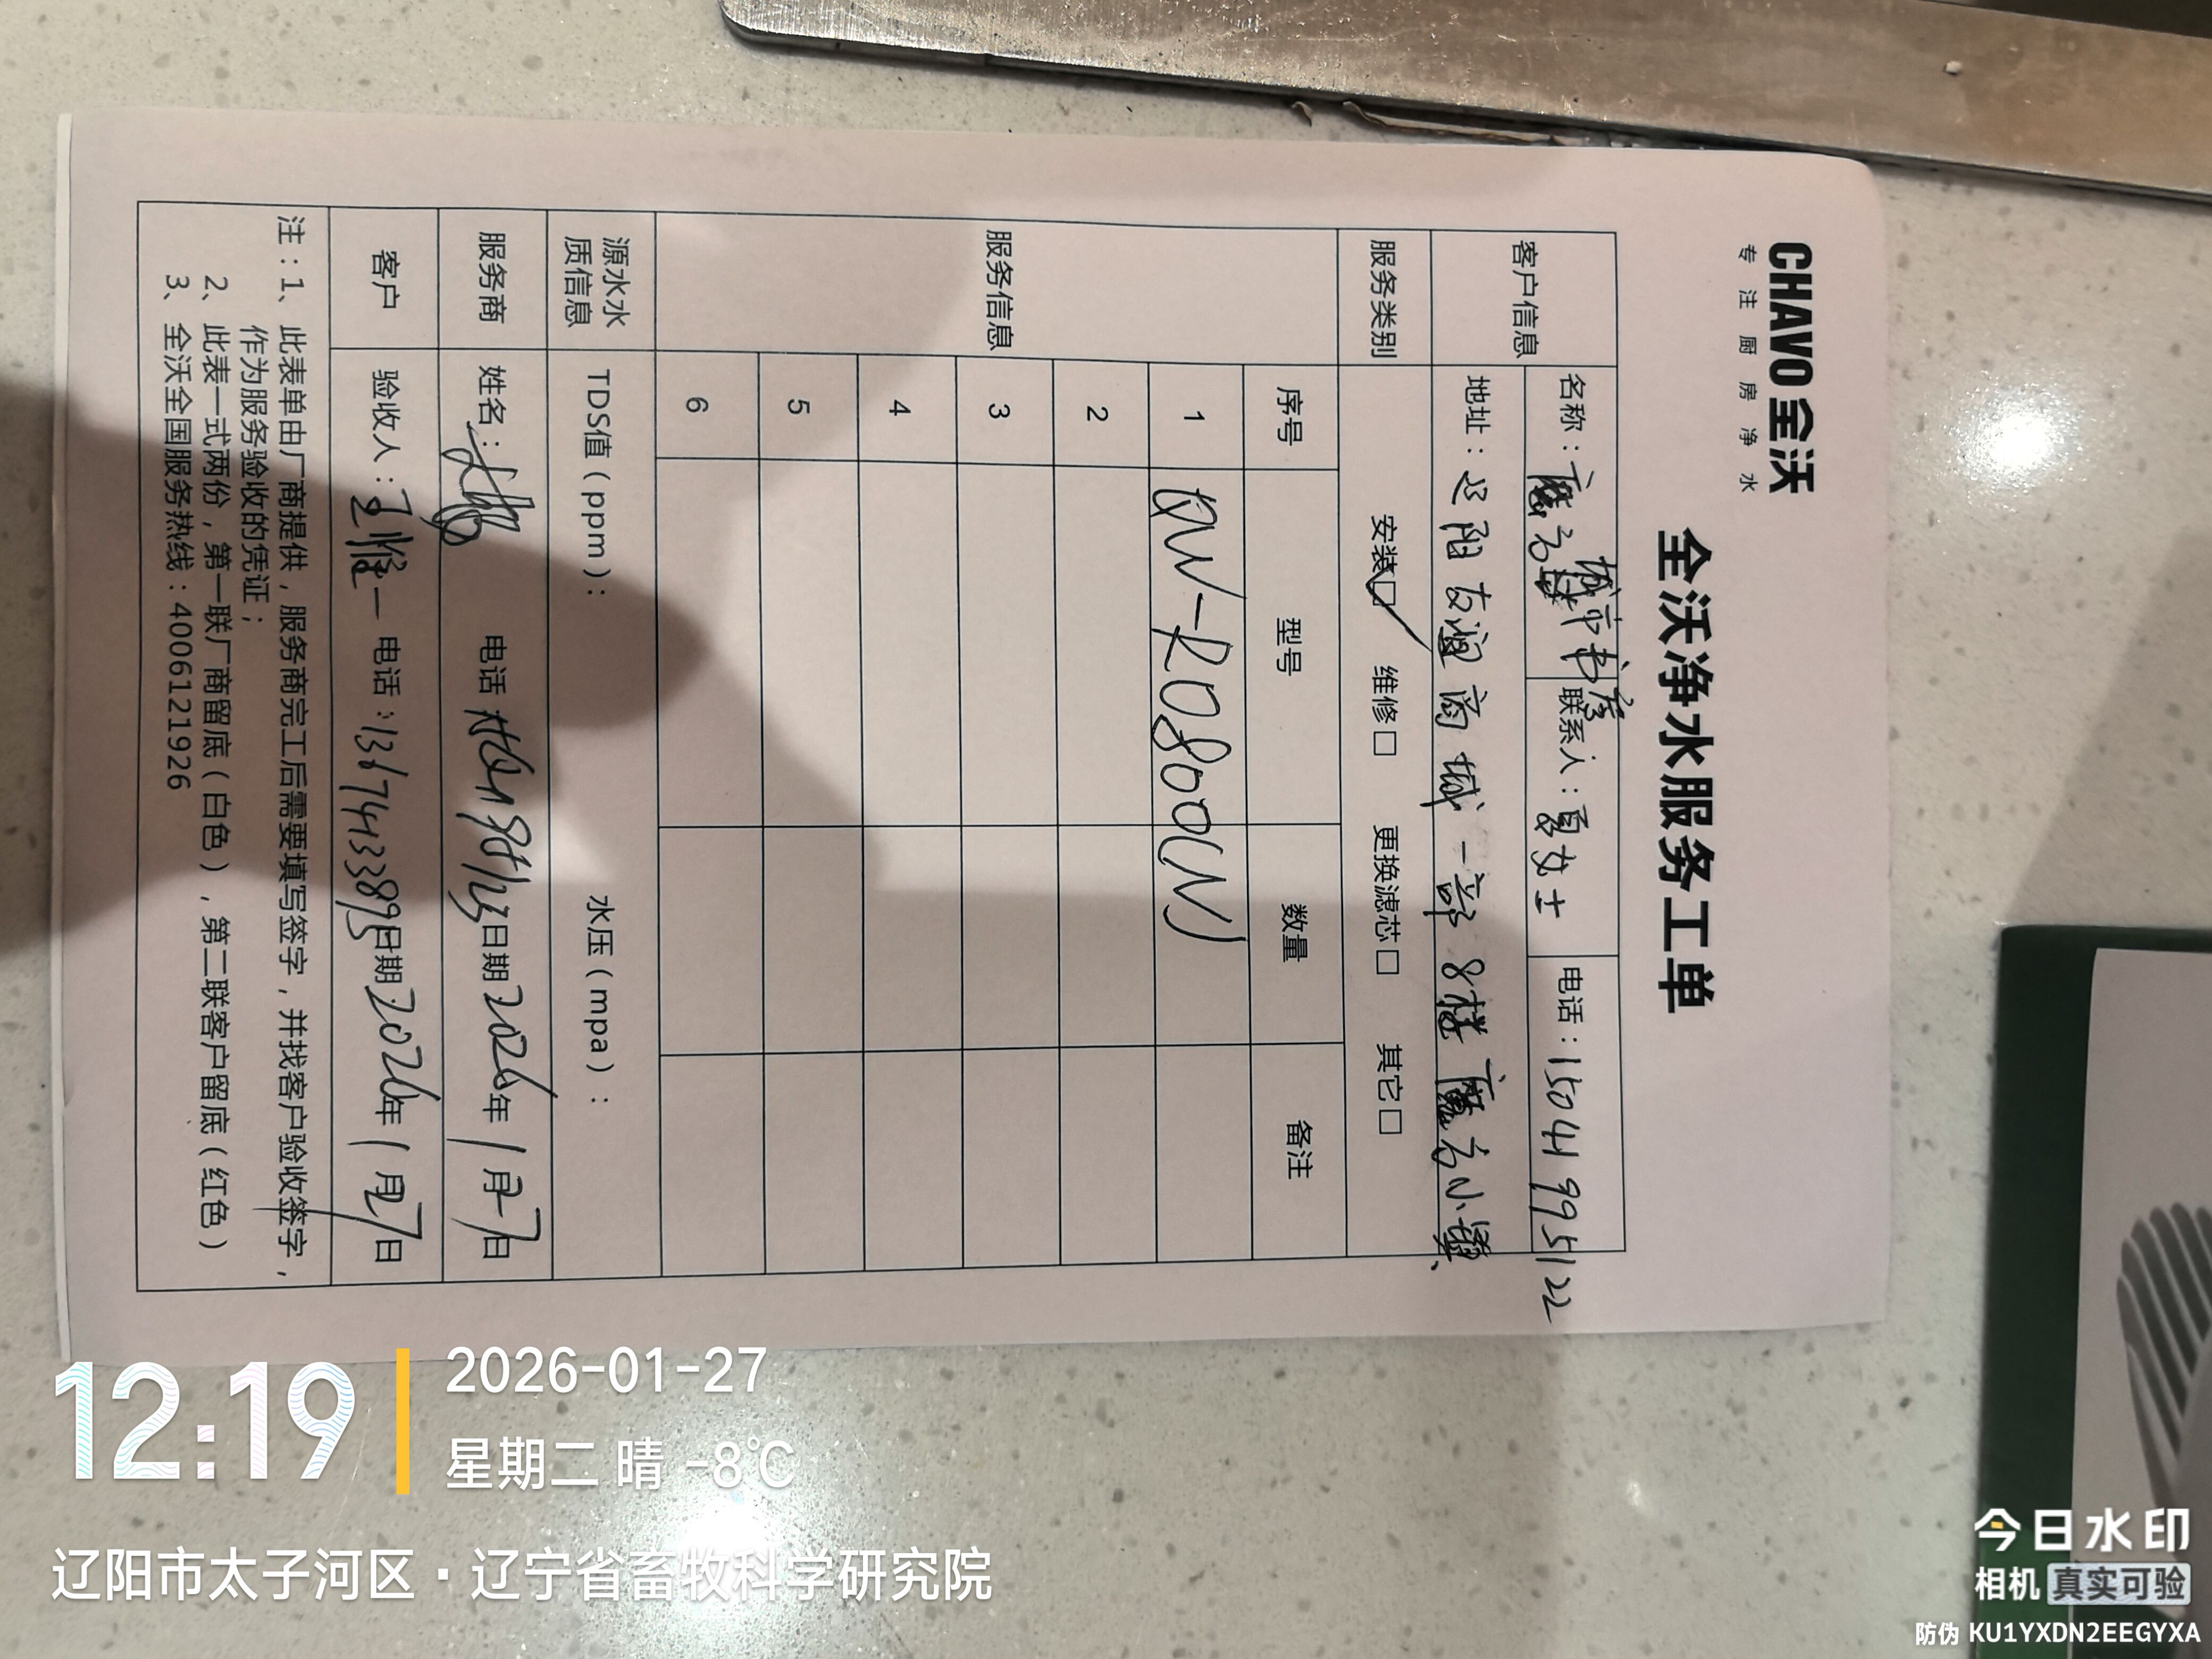 CHAVO 全沃
专注厨房净水
全沃净水服务工单
客户信息
名称：
城市书房
联系人：夏女士
电话：15041995122
地址：辽阳友谊商城一部8楼
服务类别
安装☑ 维修□ 更换滤芯□ 其它□
服务信息
序号 型号 数量 备注
1 QW-RO800(W)
2
3
4
5
6
源水水质信息
TDS值（ppm）： 水压（mpa）：
服务商 姓名： 电话： 日期2026年1月27日
客户 验收人：王 一 电话：13674133893 日期：2026年1月27日
注：1、此表单由厂商提供，服务商完工后需要填写签字，并找客户验收签字，
作为服务验收的凭证；
2、此表一式两份，第一联厂商留底（白色），第二联客户留底（红色）
3、全沃全国服务热线：4006121926
12:19
2026-01-27
星期二 晴 -8℃
辽阳市太子河区·辽宁省畜牧科学研究院
今日水印
相机 真实可验
防伪 KU1YXDN2EEGYXA